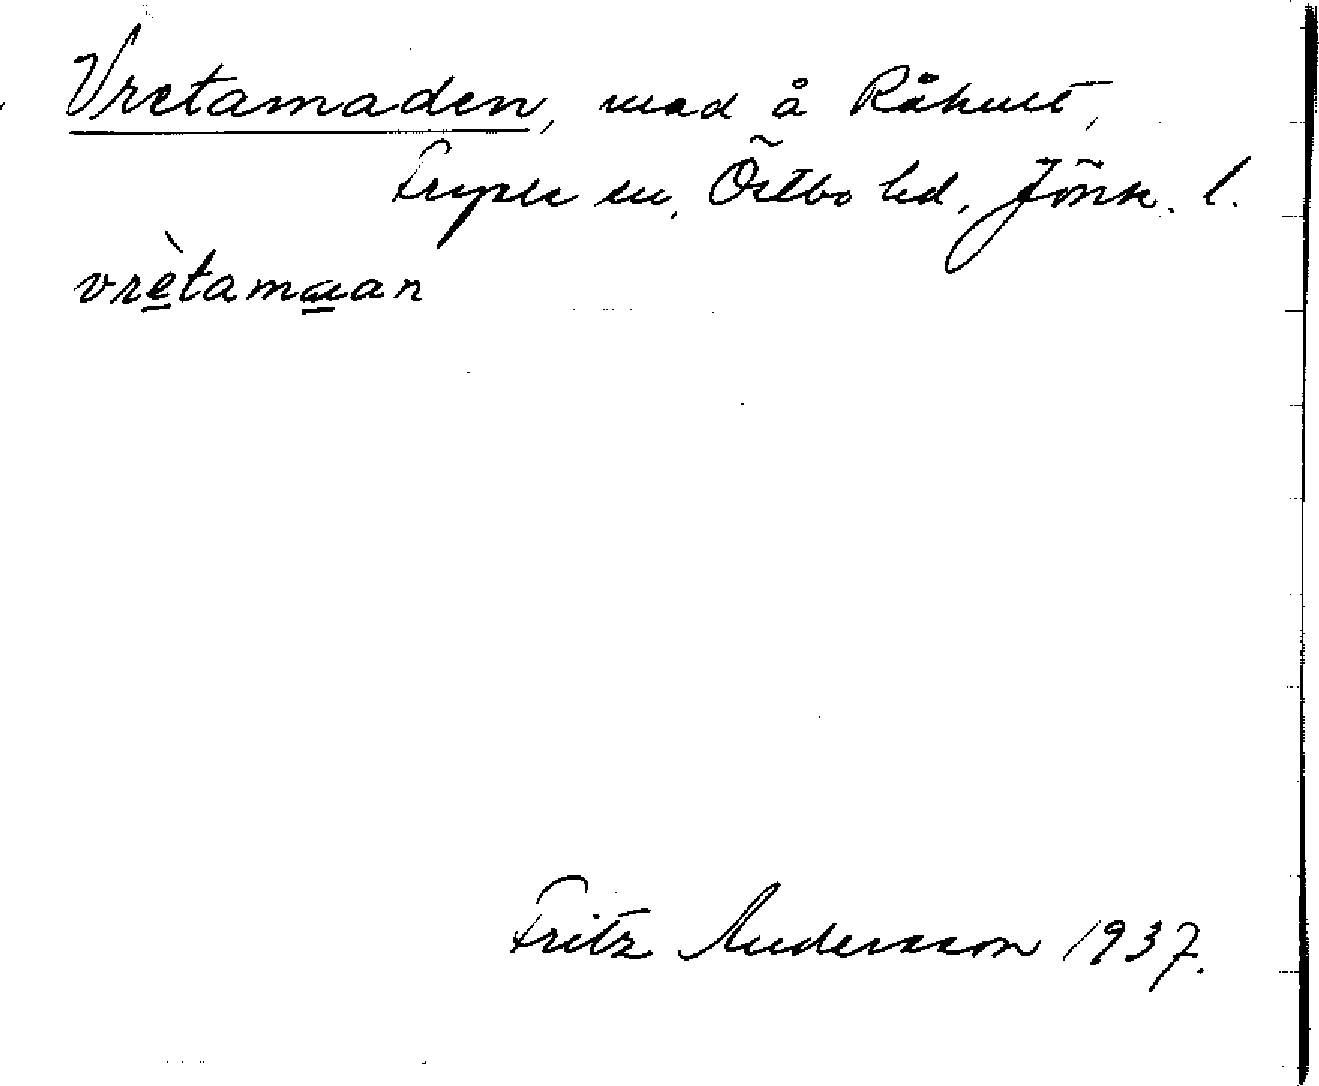 Vretamaden, mad å Råhult,
Fryele sn, Östbo hd, Jönk. l.
vrètamaan
Fritz Andersson 1937.